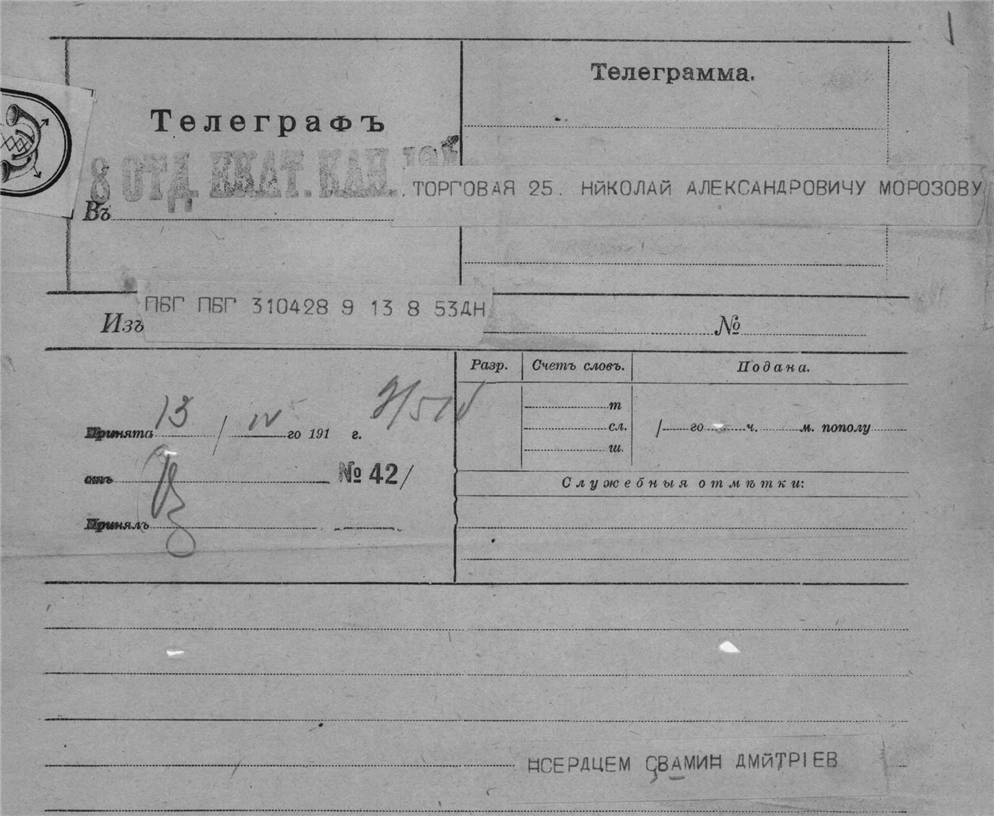 Телеграмма.
Телеграфъ
8 ОТД. ЕКАТ. КАН.
ТОРГОВАЯ 25. НИКОЛАЙ АЛЕКСАНДРОВИЧУ МОРОЗОВУ
Въ
ПБГ ПБГ 310428 9 13 8 53ДН
Изъ №
Разр. Счетъ словъ. Подана.
т
Принята 13/IV го 191 г.
сл. /го ч. м. пополу
ш.
отъ № 42/
Служебныя отмѣтки:
Принялъ
НСЕРДЦЕМ СВАМИН ДМИТРІЕВ